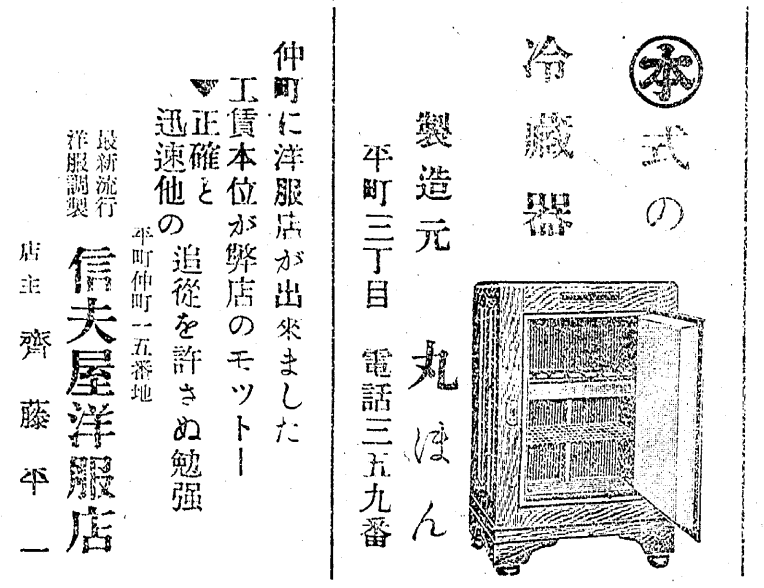 本式の
冷蔵器
製造元 丸ほん
平町三丁目 電話三五九番
仲町に洋服店が出來ました
工賃本位が弊店のモットー
▼正確と
迅速他の
追從を許さぬ勉强
平町仲町一五番地
最新流行
洋服調製
信夫屋洋服店
店主 齊藤平一